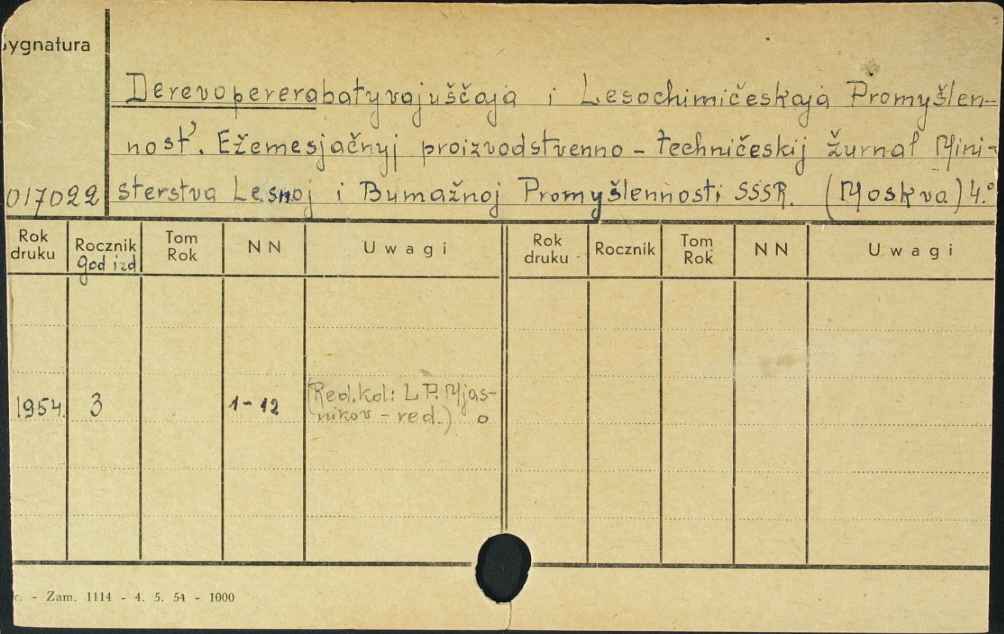 Sygnatura
Derevopererabatyvajuščaja i Lesochimičeskaja Promyšlen-
nost'. Ežemesjačnyj proizvodstvenno-techničeskij žurnal Mini-
sterstva Lesnoj i Bumažnoj Promyšlennosti SSSR. (Moskva) 4.°
017022
Rok druku Rocznik god izd Tom Rok NN Uwagi Rok druku Rocznik Tom Rok NN Uwagi
1954. 3 1-12 (Red. kol: L. P. Mjas-
nikov - red.)
- Zam. 1114 - 4. 5. 54 - 1000